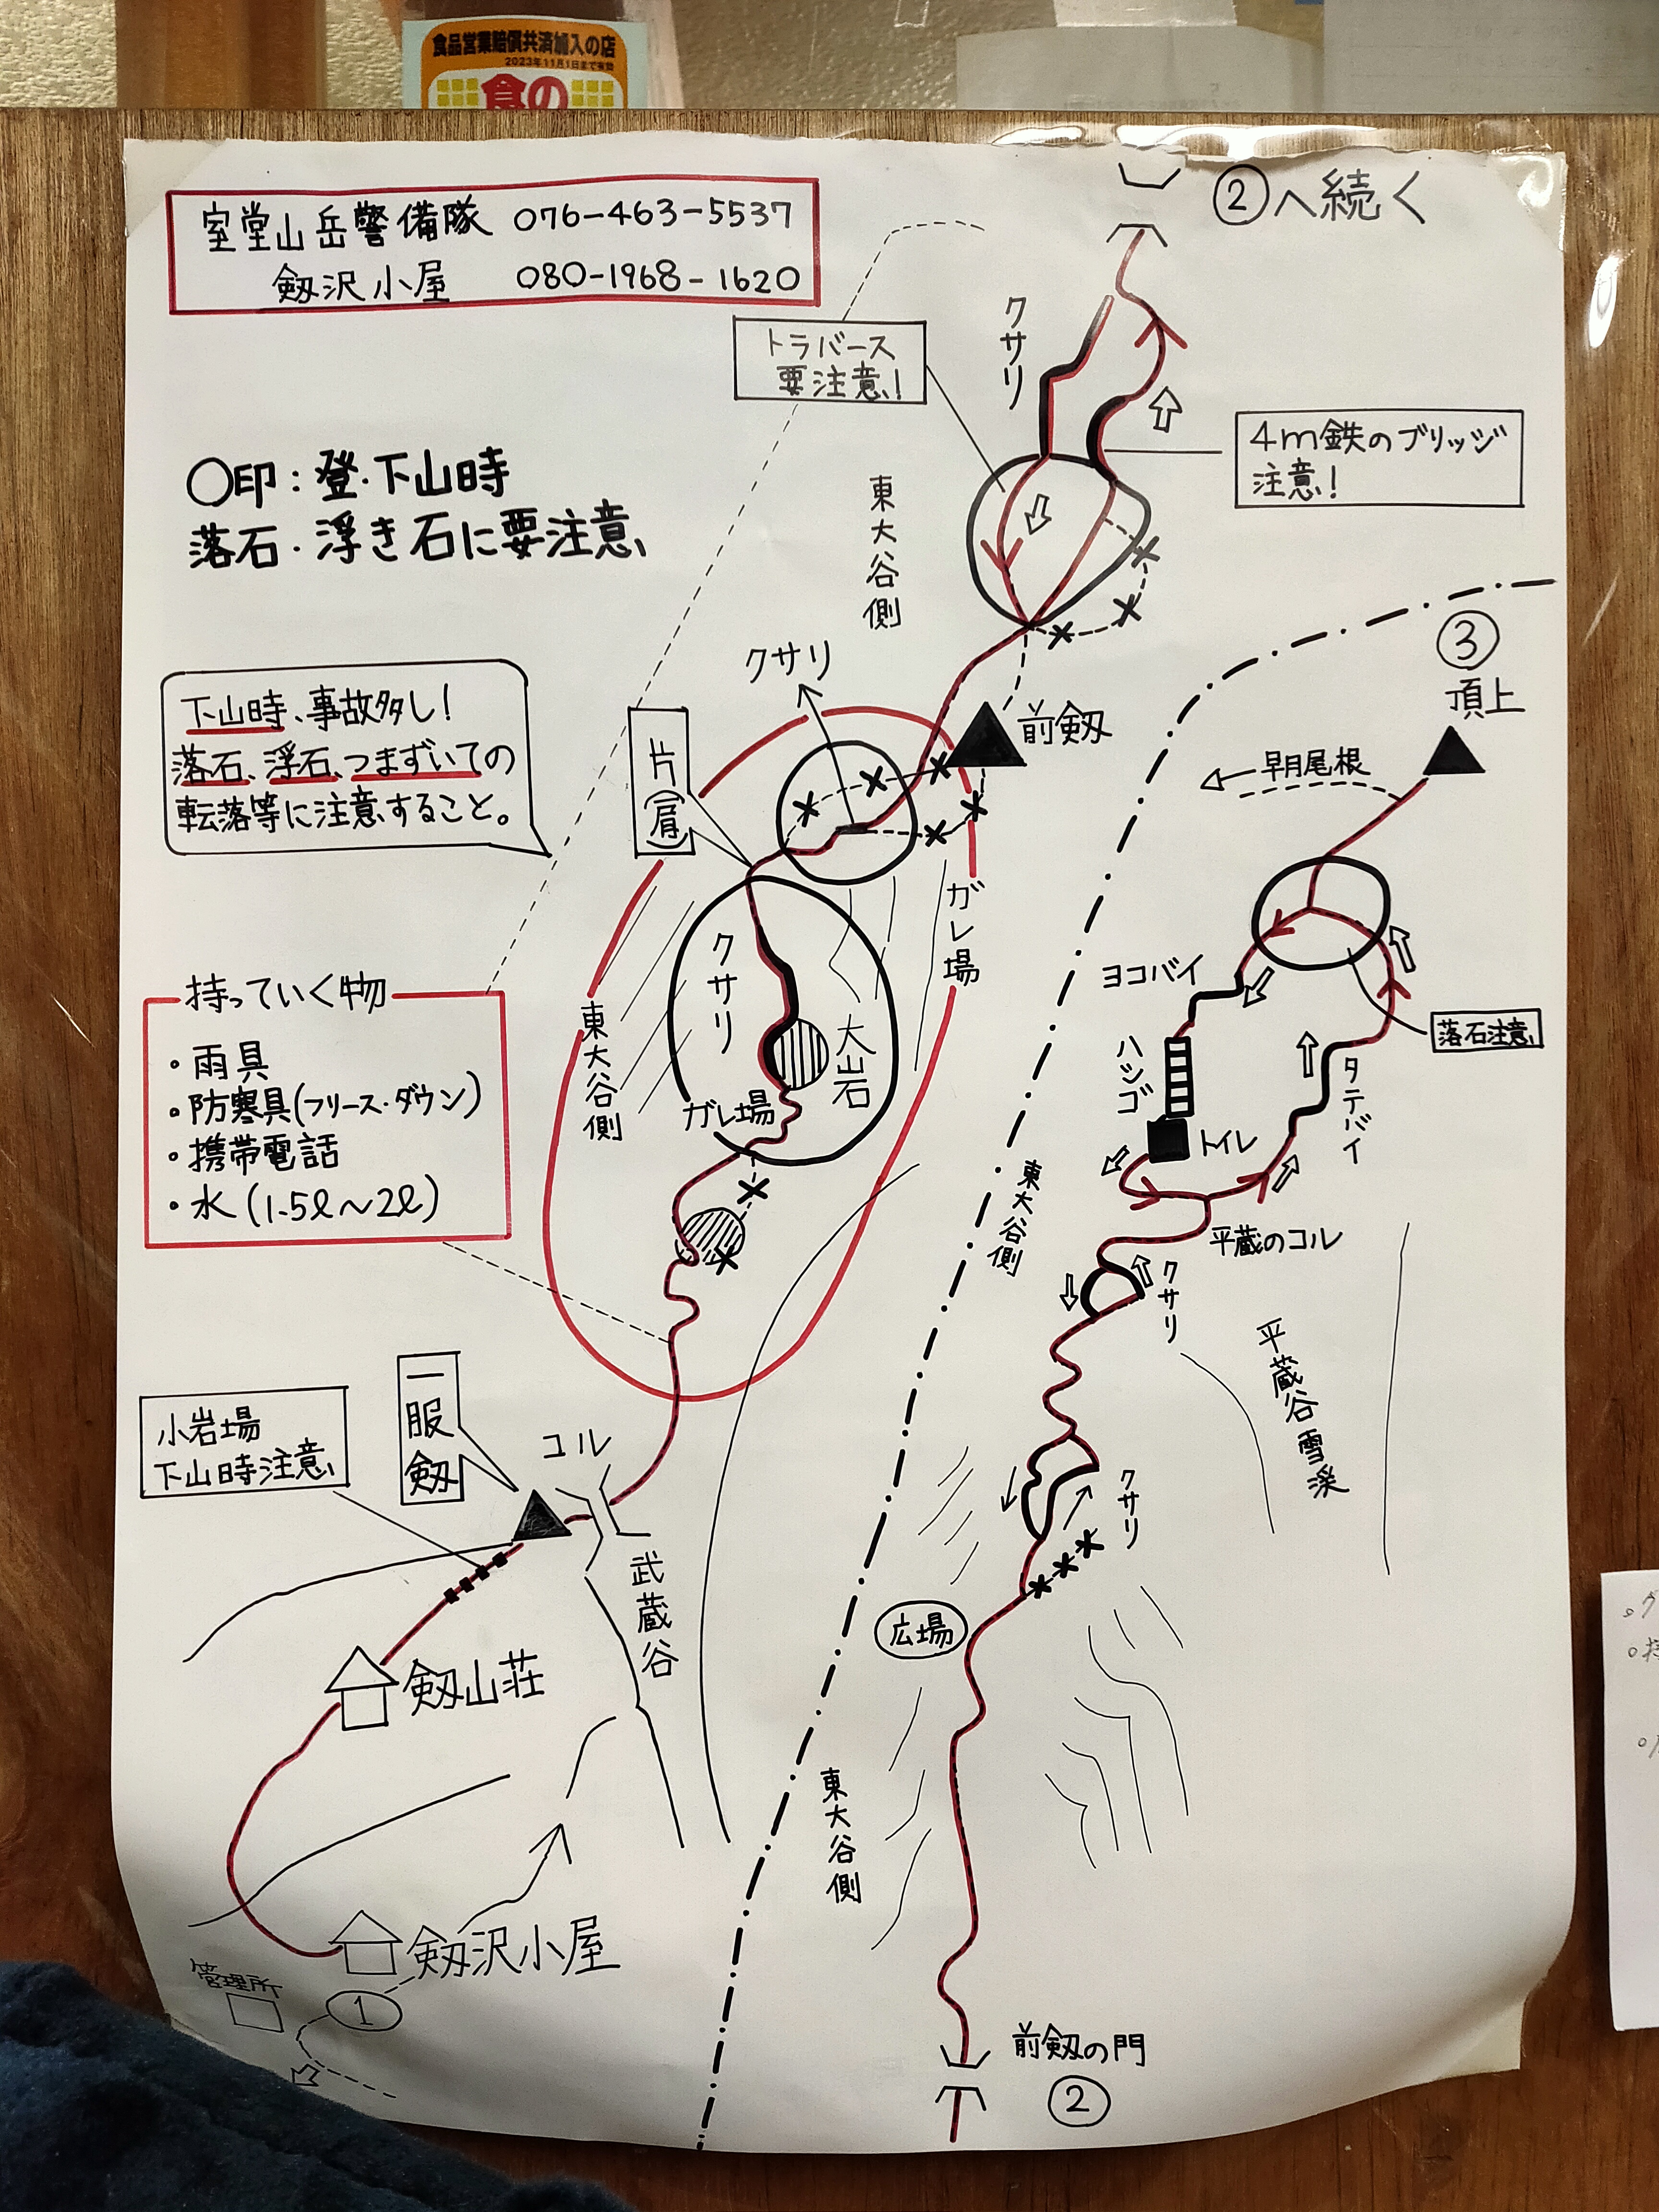 食品営業賠償共済加入の店
2023年11月1日まで有効
食の
室堂山岳警備隊 076-463-5537
劔沢小屋 080-1968-1620
②へ続く
クサリ
トラバース
要注意!
4m鉄のブリッジ
注意!
○印:登・下山時
落石・浮き石に要注意
東大谷側
③
頂上
クサリ
前劔
早月尾根
下山時、事故多し!
落石、浮石、つまずいての
転落等に注意すること。
片(肩)
ガレ場
クサリ
大岩
ガレ場
東大谷側
持っていく物
・雨具
・防寒具(フリース・ダウン)
・携帯電話
・水(1.5ℓ～2ℓ)
ヨコバイ
落石注意
ハシゴ
タテバイ
トイレ
東大谷側
平蔵のコル
クサリ
平蔵谷雪渓
小岩場
下山時注意
一服劔
コル
クサリ
武蔵谷
広場
劔山荘
東大谷側
劔沢小屋
管理所
①
前劔の門
②